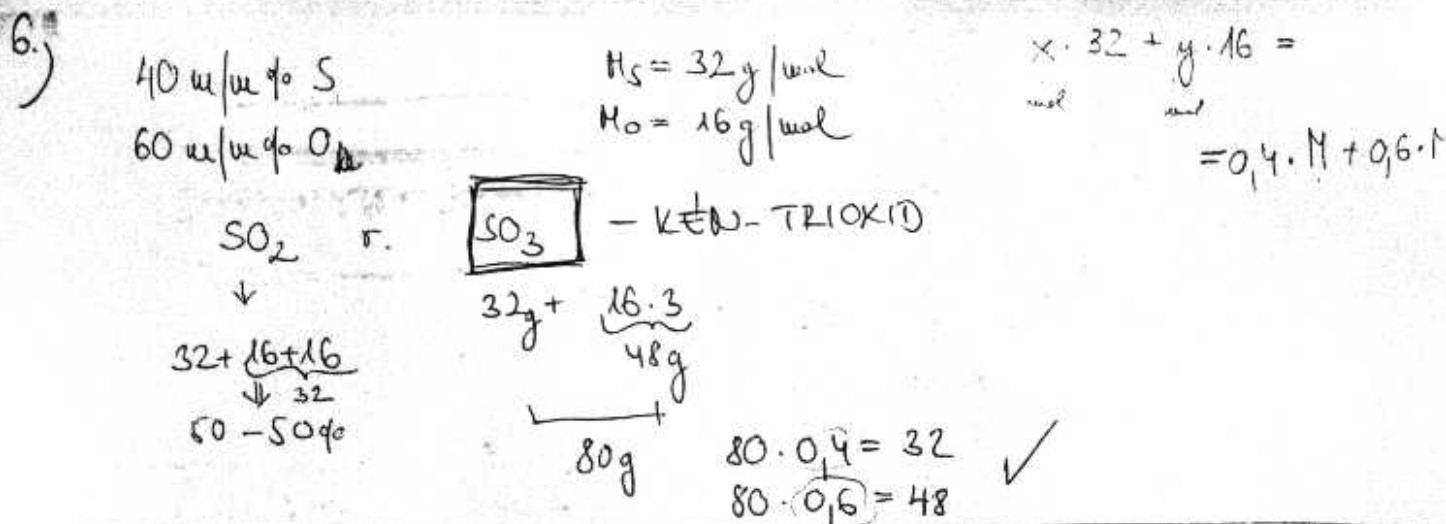 6.)
40 m/m % S
60 m/m % O
M_S = 32 g/mol
M_O = 16 g/mol
x · 32 + y · 16 =
mol mol
= 0,4 · M + 0,6 · M
SO₂ v. SO₃ – KÉN-TRIOXID
↓
32 + 16 + 16
⇓ 32
50 – 50%
32g + 16 · 3
48g
80g
80 · 0,4 = 32 ✓
80 · 0,6 = 48